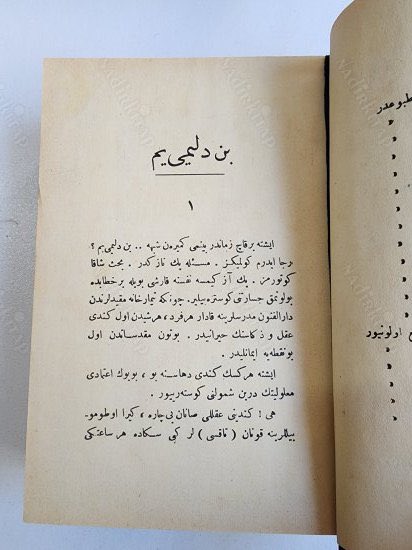 بن دلیمی‌یم
١
ایشته برقاچ زماندر بینمی کمیرەن شبهه .. بن دلیمی‌یم ؟
رجا ایدرم کولمیکز . مسئله پك نازکدر . بحث شاقا
کوتورمز . پك آز کیمسه نفسنه قارشی بویله برخطابده
بولونمق جسارتی کوستره‌بیلیر. چونکه تیمارخانه مقیدلرندن
دارالفنون مدرسلرینه قادار هرفرد ، هرشیدن اول کندی
عقل و ذکاسنك حیرانیدر . بوتون مقدساتدن اول
بونقطه‌یه ایمانلیدر .
ایشته هرکسك کندی دهاسنه بو ، بویوك اعتمادی
معلولیتك درین شمولنی کوسته‌رییور .
هی ! کندینی عقللی صانان بی‌چاره ، کیرا اوطومو-
بیللرینه قونان ( تاقسی ) لر کبی سکاده هرساعتکی
طبوعدر
اولونیور
NADİRKİTAP